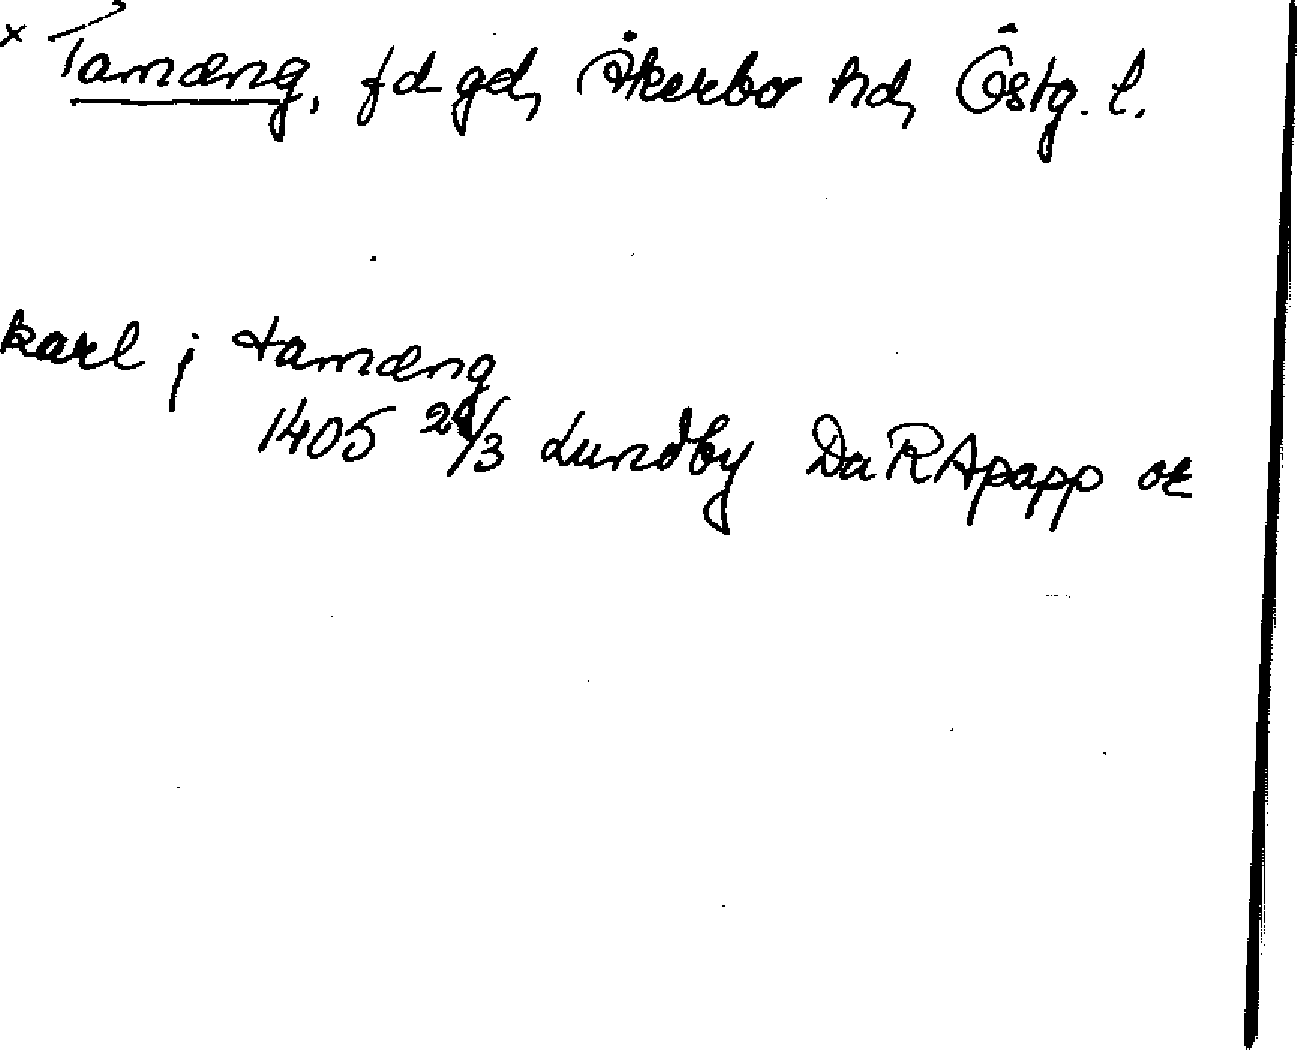 x Tamæng, fd gd, Åkerbo hd, Östg. l.
karl j tamæng
1405 24/3 Lundby DaRApapp or